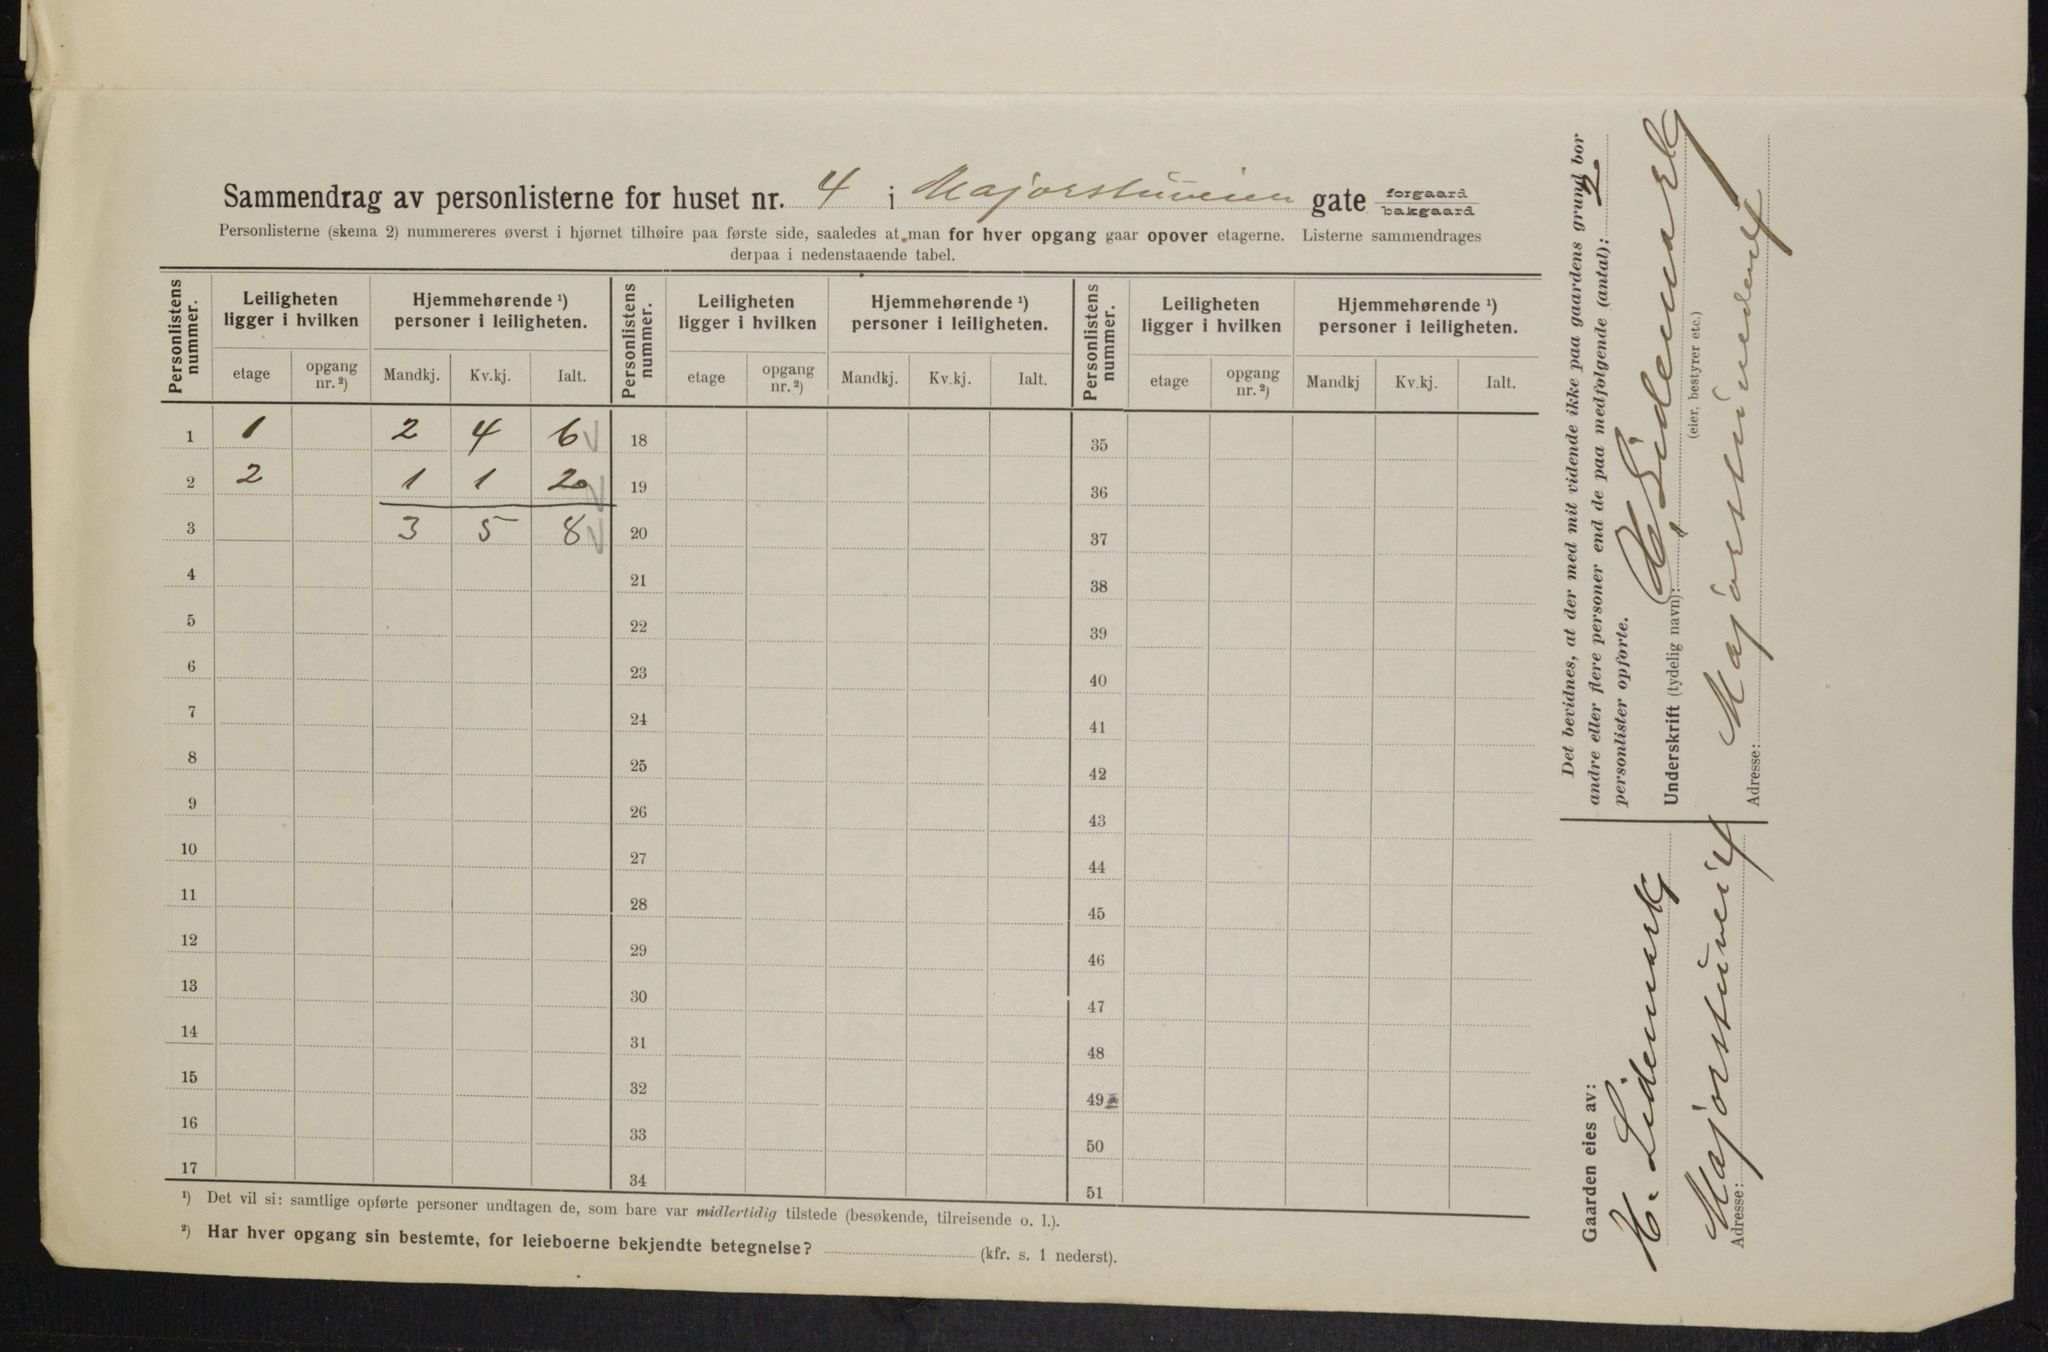 Sammendrag av personlisterne for huset nr. 4 i Majorstuveien gate forgaard bakgaard
Personlisterne (skema 2) nummereres øverst i hjørnet tilhøire paa første side, saaledes at man for hver opgang gaar opover etagerne. Listerne sammendrages
derpaa i nedenstaaende tabel.
Personlistens nummer. Leiligheten ligger i hvilken Hjemmehørende ¹) personer i leiligheten. Personlistens nummer. Leiligheten ligger i hvilken Hjemmehørende ¹) personer i leiligheten. Personlistens nummer. Leiligheten ligger i hvilken Hjemmehørende ¹) personer i leiligheten.
etage opgang nr. ²) Mandkj. Kv.kj. Ialt. etage opgang nr. ²) Mandkj. Kv.kj. Ialt. etage opgang nr. ²) Mandkj Kv.kj. Ialt.
1 1 2 4 6 18 35
2 2 1 1 2 19 36
3 3 5 8 20 37
4 21 38
5 22 39
6 23 40
7 24 41
8 25 42
9 26 43
10 27 44
11 28 45
12 29 46
13 30 47
14 31 48
15 32 49
16 33 50
17 34 51
¹) Det vil si: samtlige opførte personer undtagen de, som bare var midlertidig tilstede (besøkende, tilreisende o. l.).
²) Har hver opgang sin bestemte, for leieboerne bekjendte betegnelse? (kfr. s. 1 nederst).
Det bevidnes, at der med mit vidende ikke paa gaardens grund bor
andre eller flere personer end de paa medfølgende (antal): 2
personlister opførte.
Underskrift (tydelig navn): Lidemark
(eier, bestyrer etc.)
Adresse: Majorstuveien 4
Gaarden eies av:
H. Lidemark
Adresse: Majorstuvei 4